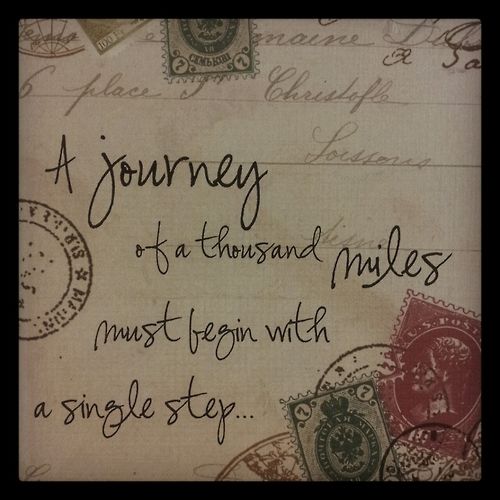 6 place Christofle
Soissons
A journey
of a thousand miles
must begin with
a single step...
U.S. POST
7
7
7
7